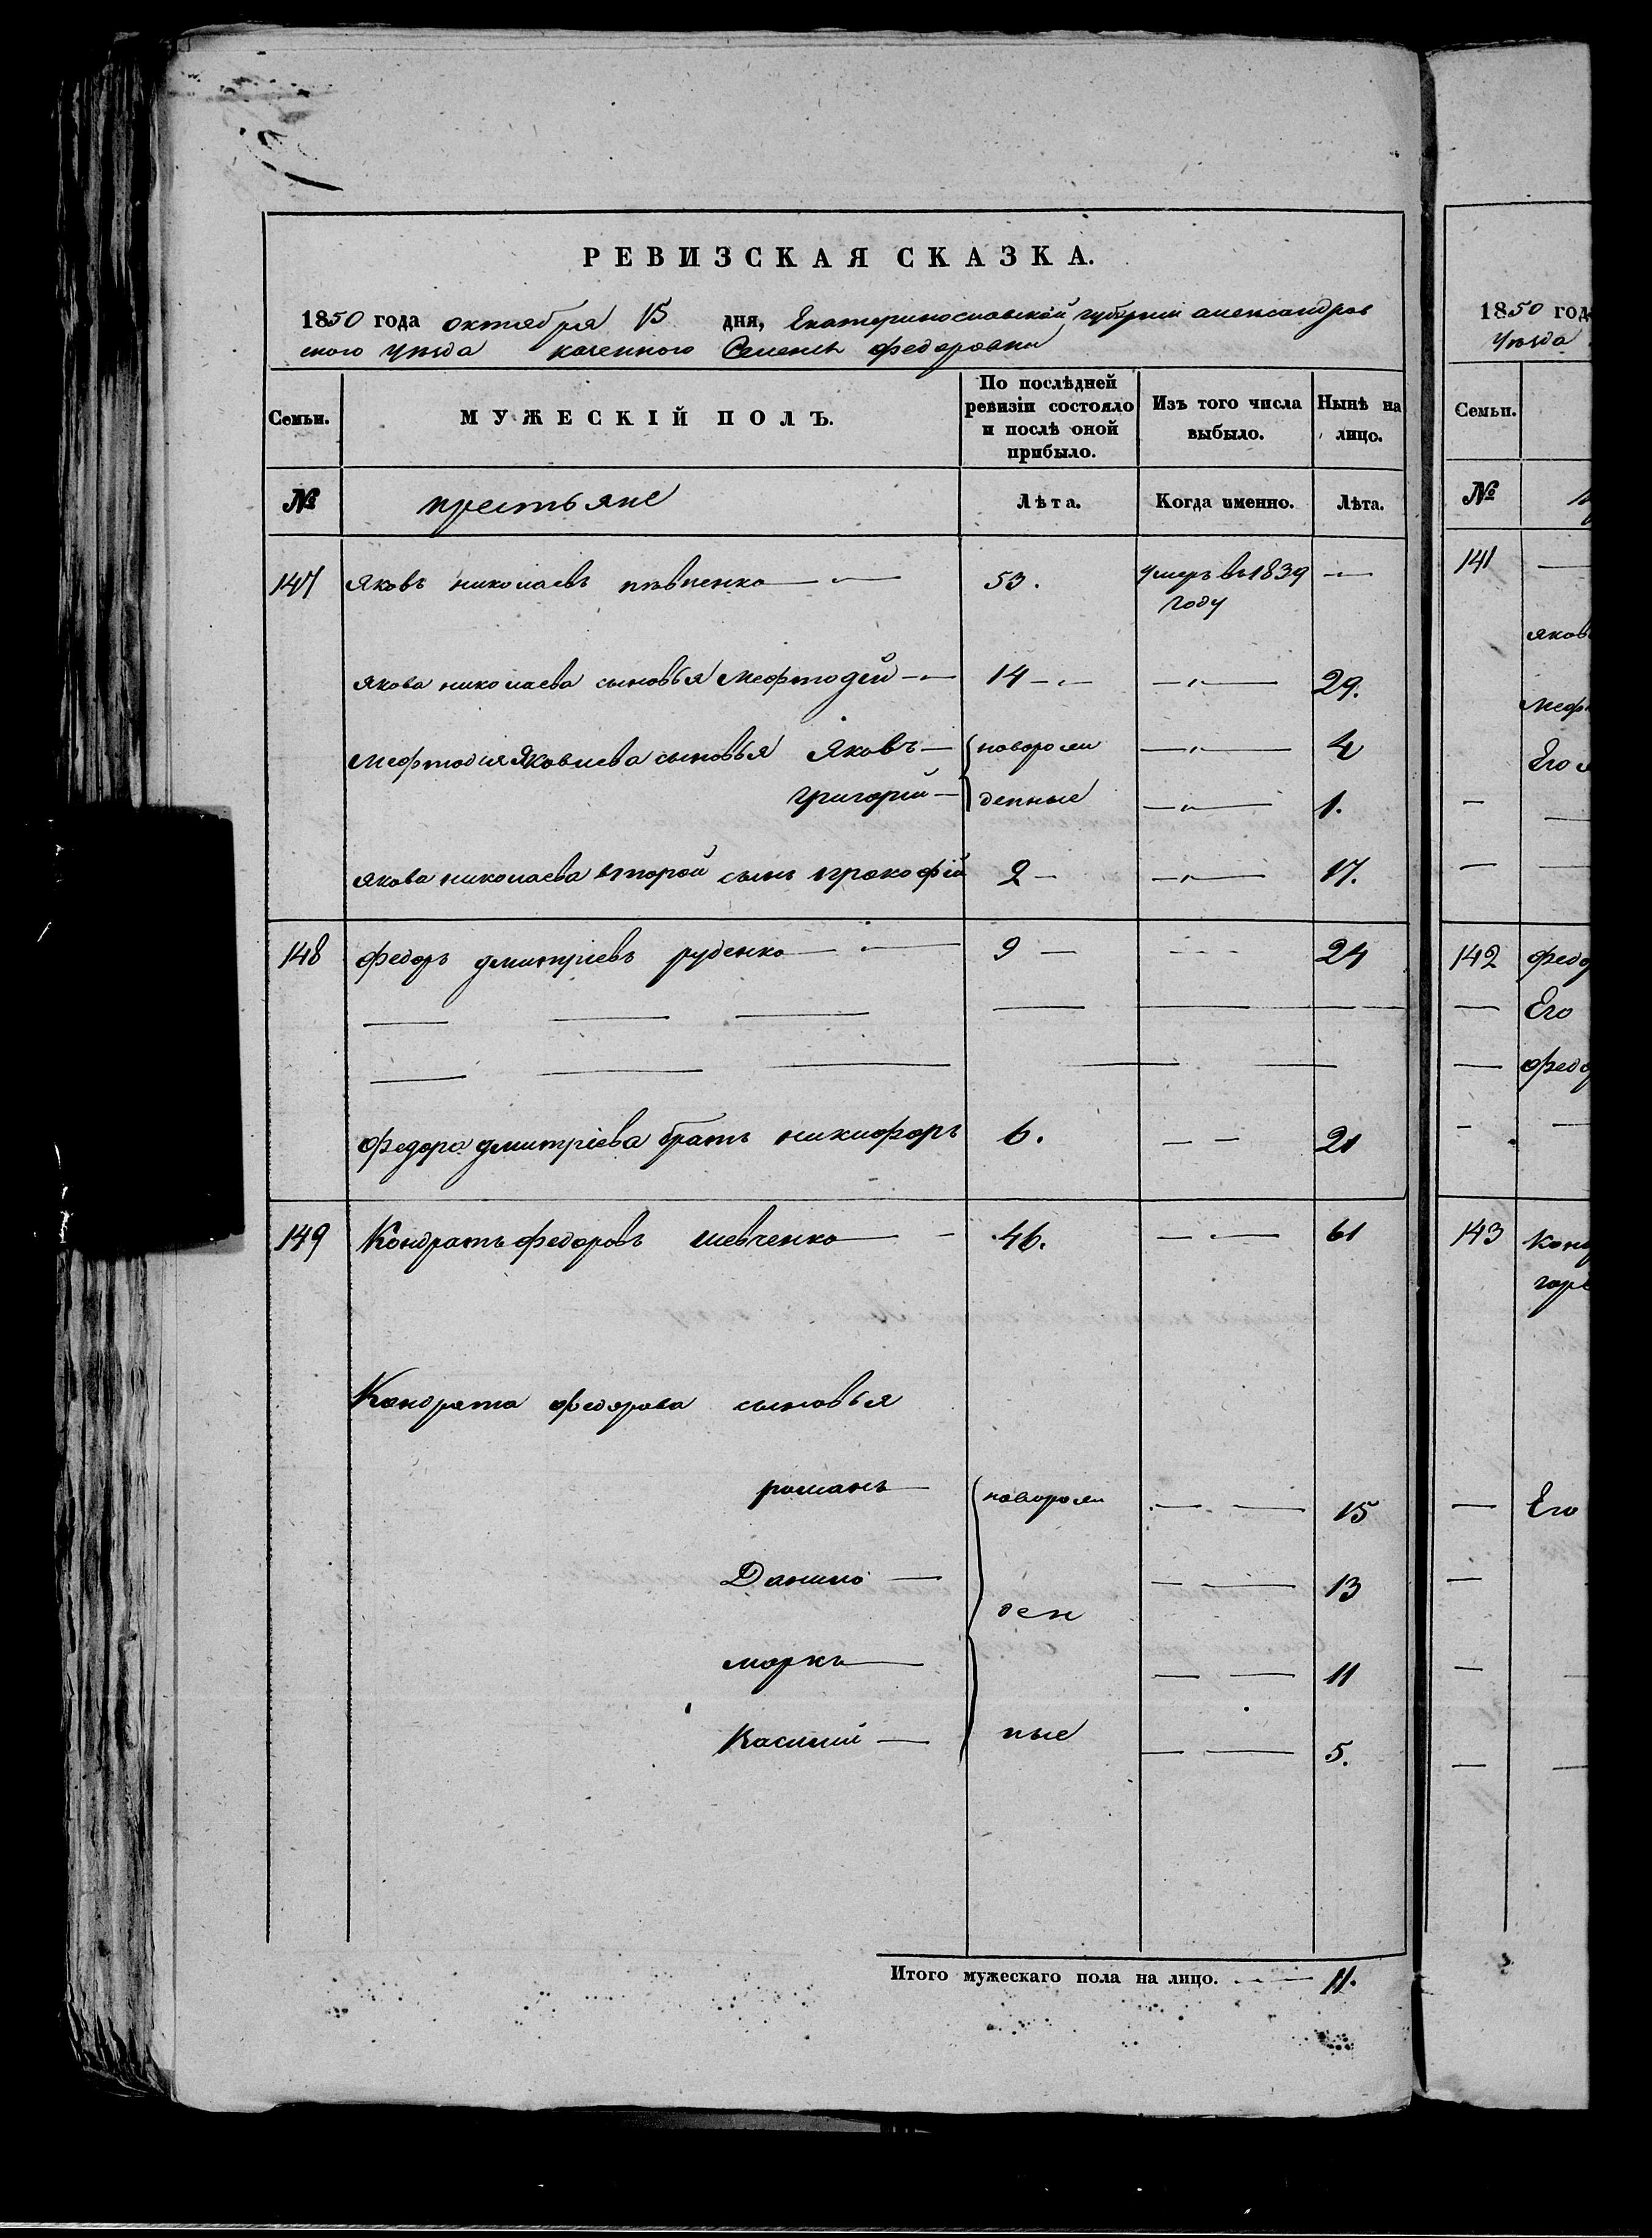 РЕВИЗСКАЯ СКАЗКА.
1850 года октября 15 дня, Екатеринославской губернии александров
ского уезда казенного Селенія федоровки
Семьи. МУЖЕСКІЙ ПОЛЪ. По послѣдней ревизіи состояло и послѣ оной прибыло. Изъ того числа выбыло. Нынѣ на лицо.
№ крестьяне Лѣта. Когда именно. Лѣта.
147 Яковъ николаевъ пивненко 53. умеръ въ 1839 —
году
якова николаева сыновья Мефтодій 14 — 29.
Мефтодія Яковлева сыновья Яковъ — новорож — 4
григорій — денные — 1.
якова николаева второй сынъ прокофій 2 — 17.
148 федоръ дмитріевъ руденко 9 — 24
федора дмитріева братъ никифоръ 6. — 21
149 Кондратъ федоровъ шевченко 46. — 61
Кондрата федорова сыновья
романъ — новорож — 15
Данило — 13
ден
марко — 11
Василий — ные — 5.
Итого мужескаго пола на лицо. — 11.
1850 год
уезда
Семьи.
№
141 —
яков
Меф
Его
142 федо
Его
федо
143 Конд
гор
Его